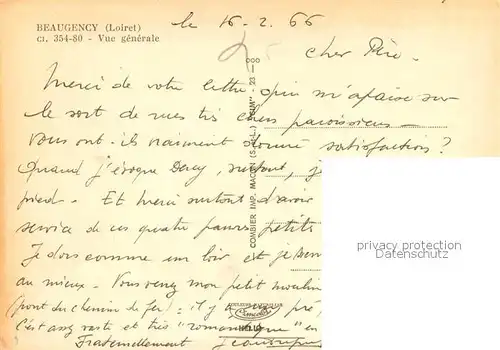 BEAUGENCY (Loiret)
Cl. 354-80 - Vue générale
le 16-2. 66
Cher Père.
Merci de votre lettre qui m'apaise sur
le sort de mes très chers paroissiens —
vous ont-ils vraiment donné satisfaction ?
Quand j'évoque Dercy, surtout, j
pied. Et merci surtout d'avoir
service de ces quatre pauvres petits
Je dors comme un loir et je
au mieux. Vous venez mon petit moulin
(pont du chemin de fer) : il y a un pré,
c'est assez vaste et très "romantique" en
Fraternellement
COMBIER IMP. MACON (S.-&-L.) "CIM" 23
privacy protection
Datenschutz